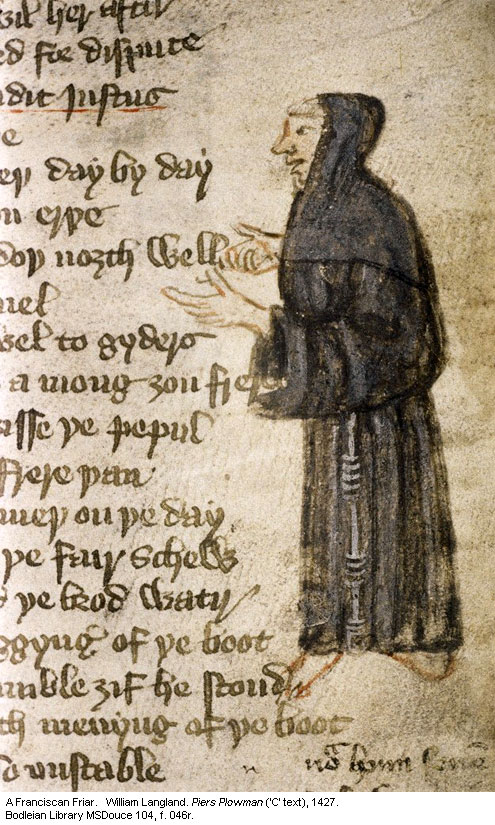 her aftir
ed foe dispute
dit Justus
e
er day by day
n erþe
doþ north well
nel
wel to gyders
a mong зou frere
asse þe pepul
frere þan
on þe day
þe fair schewes
þe brod watir
ggyng of þe boot
mble зif he stond
th mevyng of þe boot
so unstable
A Franciscan Friar. William Langland. Piers Plowman ('C' text), 1427.
Bodleian Library MSDouce 104, f. 046r.